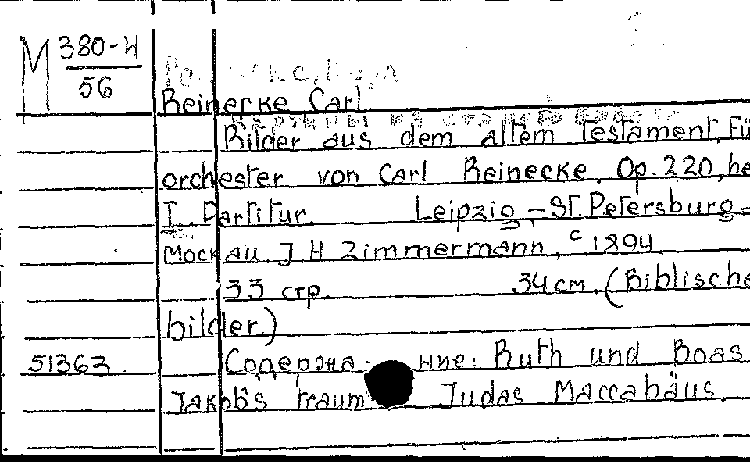 M 380-И
56
Reinecke Carl.
Bilder aus dem altem Testament. Fü
orchester von Carl Reinecke. Op. 220, he
I. Partitur. Leipzig - St. Petersburg -
Москau. J H Zimmermann, c 1894
33 стр. 34 см. (Biblische
bilder.)
51363 Содержа- ние: Ruth und Boas
Jakobs traum Judas Maccabäus.